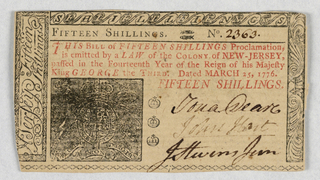 FIFTEEN SHILLINGS. No. 2363.
THIS BILL of FIFTEEN SHILLINGS Proclamation,
is emitted by a LAW of the COLONY of NEW-JERSEY,
passed in the Fourteenth Year of the Reign of his Majesty
King GEORGE the Third. Dated MARCH 25, 1776.
FIFTEEN SHILLINGS.
John Hart
J Stevens Jun